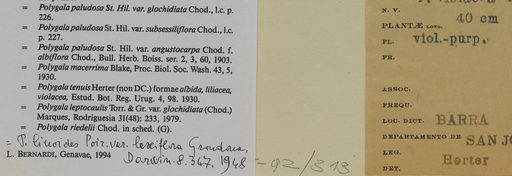 = Polygala paludosa St. Hil. var. glochidiata Chod., l.c. p.
226.
= Polygala paludosa St. Hil. var. subsessiliflora Chod., l.c.
p. 227.
= Polygala paludosa St. Hil. var. angustocarpa Chod. f.
albiflora Chod., Bull. Herb. Boiss. ser. 2, 3, 60, 1903.
= Polygala macerrima Blake, Proc. Biol. Soc. Wash. 43, 5,
1930.
= Polygala tenuis Herter (non DC.) formae albida, liliacea,
violacea, Estud. Bot. Reg. Urug. 4, 98. 1930.
= Polygala leptocaulis Torr. & Gr. var. glochidiata (Chod.)
Marques, Rodriguesia 31(48): 223, 1979.
= Polygala riedelii Chod. in sched. (G).
= P. linoides Poir. var. laxiflora Grondona,
L. BERNARDI, Genavae, 1994 Darwin. 8. 347, 1948
= 92/313
N. V.
PLANTÆ LONG. 40 cm
FL. viol.-purp.
FR.
ASSOC.
FREQU.
LOC. DICT. BARRA
DEPARTAMENTO DE SAN JO
LEG. Herter
DET.